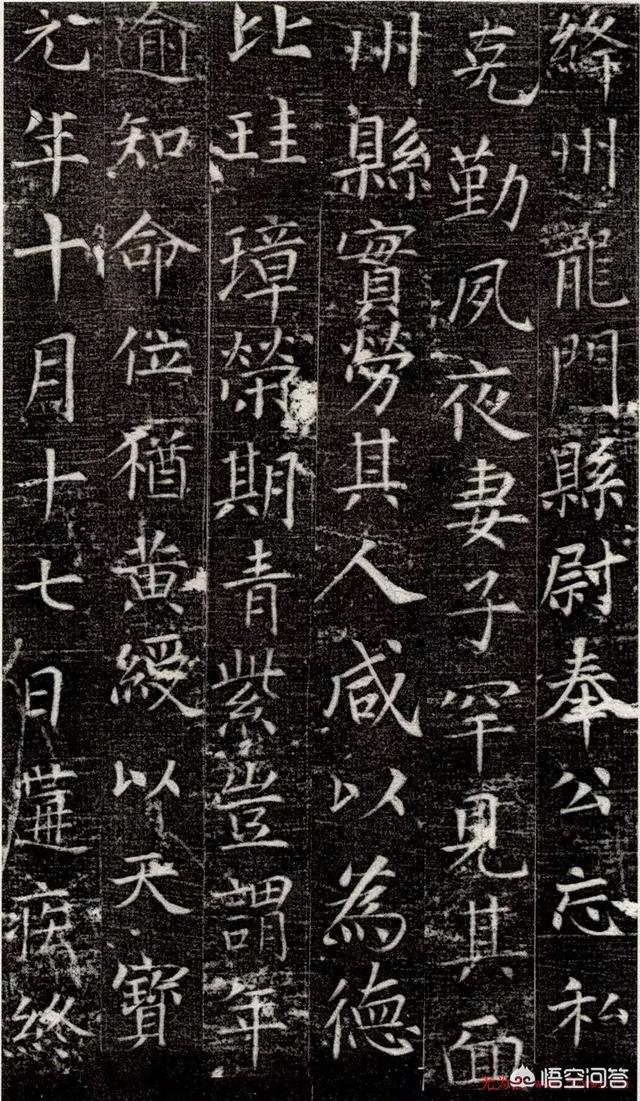 絳州龍門縣尉奉公忘私
克勤夙夜妻子罕見其面
州縣實勞其人咸以為德
比珪璋榮期青紫豈謂年
逾知命位猶黃綬以天寶
元年十月十七日遘疾終
悟空问答